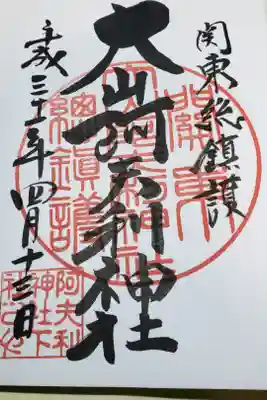 関東総鎮護
大山阿夫利神社
平成三十一年四月十三日
關東
總鎮護
阿夫利
神社下